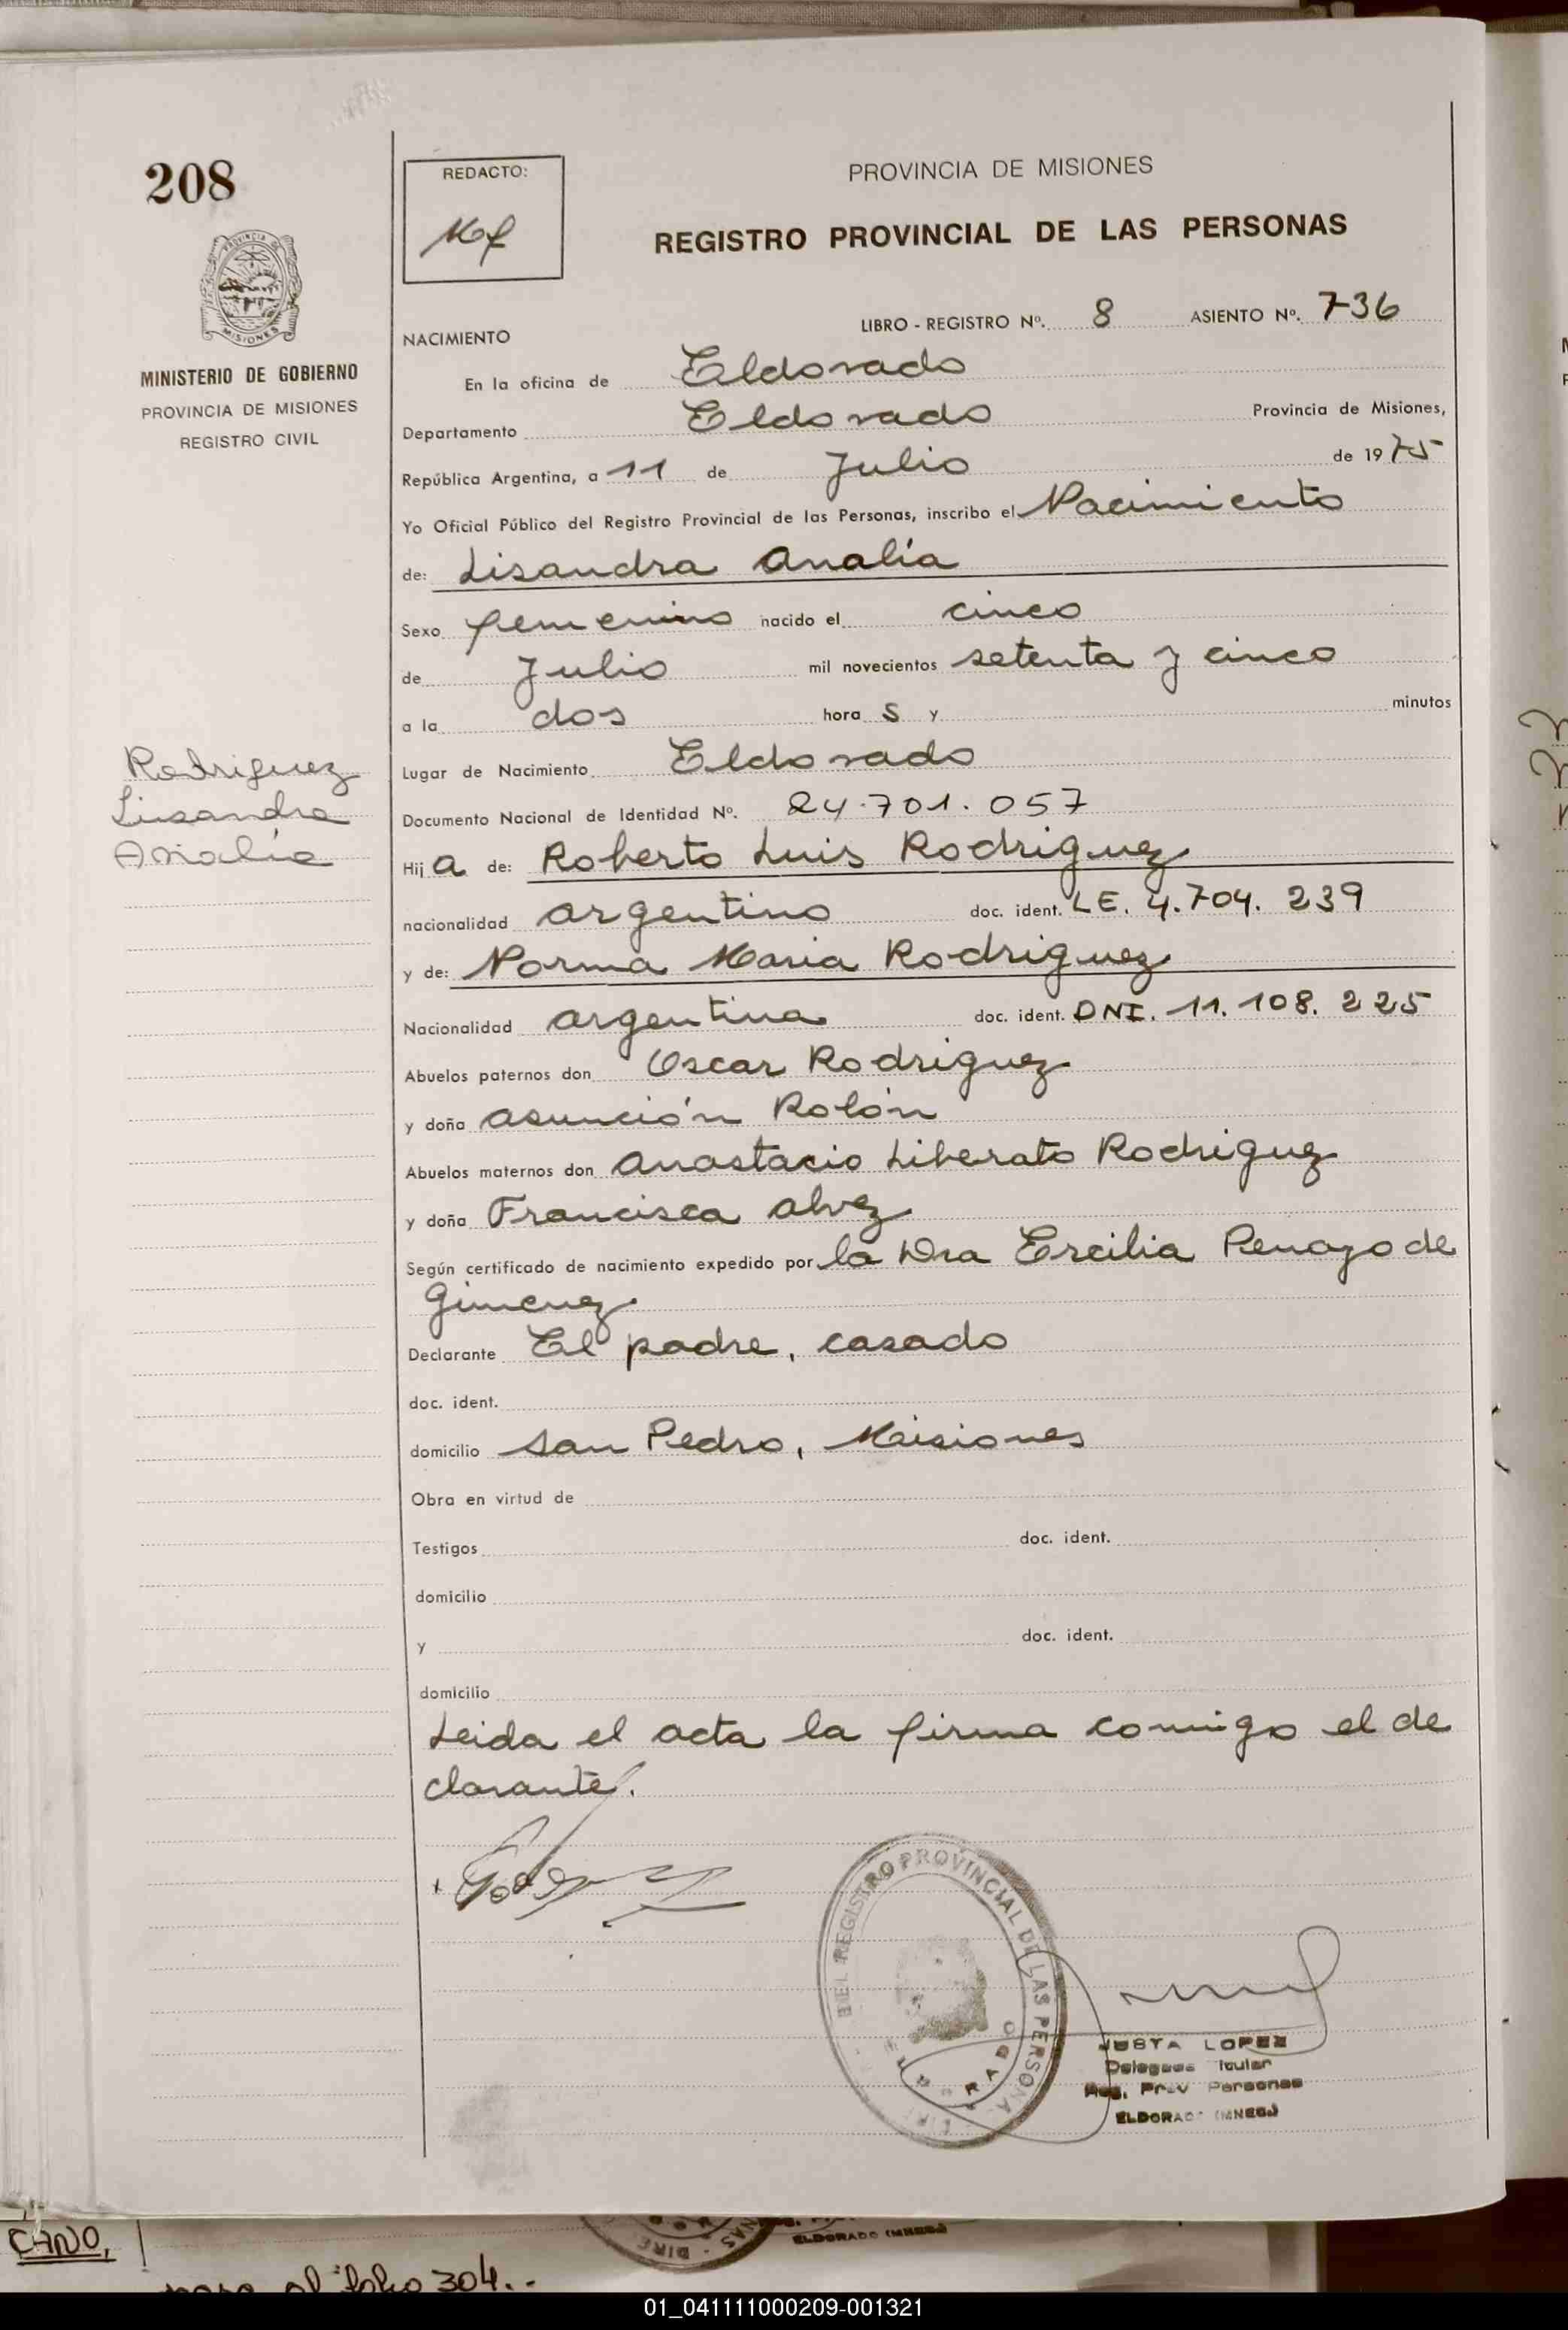 208
REDACTO:
PROVINCIA DE MISIONES
REGISTRO PROVINCIAL DE LAS PERSONAS
MISIONES
MINISTERIO DE GOBIERNO
PROVINCIA DE MISIONES
REGISTRO CIVIL
NACIMIENTO
LIBRO - REGISTRO Nº. 8 ASIENTO Nº. 736
En la oficina de Eldorado
Departamento Eldorado Provincia de Misiones,
República Argentina, a 11 de Julio de 1975
Yo Oficial Público del Registro Provincial de las Personas, inscribo el Nacimiento
de: Lisandra Analía
Sexo femenino nacido el cinco
de Julio mil novecientos setenta y cinco
a la dos hora s y minutos
Lugar de Nacimiento Eldorado
Rodriguez
Lisandra
Analía
Documento Nacional de Identidad Nº. 24.701.057
Hij a de: Roberto Luis Rodriguez
nacionalidad argentino doc. ident. LE. 4.704.239
y de: Norma Maria Rodriguez
Nacionalidad argentina doc. ident. DNI. 11.108.225
Abuelos paternos don Oscar Rodriguez
y doña Asunción Rolón
Abuelos maternos don Anastacio Liberato Rodriguez
y doña Francisca Alvez
Según certificado de nacimiento expedido por la Dra Ercilia Penayo de
Gimenez
Declarante El padre, casado
doc. ident.
domicilio San Pedro, Misiones
Obra en virtud de
Testigos doc. ident.
domicilio
y doc. ident.
domicilio
Leida el acta la firma comigo el de
clarante.
DEL REGISTRO PROVINCIAL DE LAS PERSONAS
JUSTA LOPEZ
Delegada Titular
Reg. Prov Personas
ELDORADO (MNES.)
CANO,
ELDORADO (MNES.)
pasa al folio 304.-
01_041111000209-001321